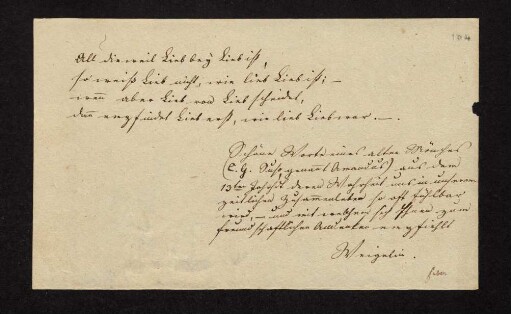 All die weil Lieb bey Lieb ist,
so weiß Lieb nicht, wie lieb Lieb ist; –
wenn aber Lieb von Lieb scheidet,
dann empfindet Lieb erst, wie lieb Lieb war. –.
Schöne Worte eines alten Mönches
genannt Amandus) aus dem
13ten deren Wahrheit uns in unserem
zeitlichen Zusammenleben so oft fühlbar
wird, – und mit welchen sich Ihnen zum
freundschaftlichen Andenken empfiehlt
Weigelin.